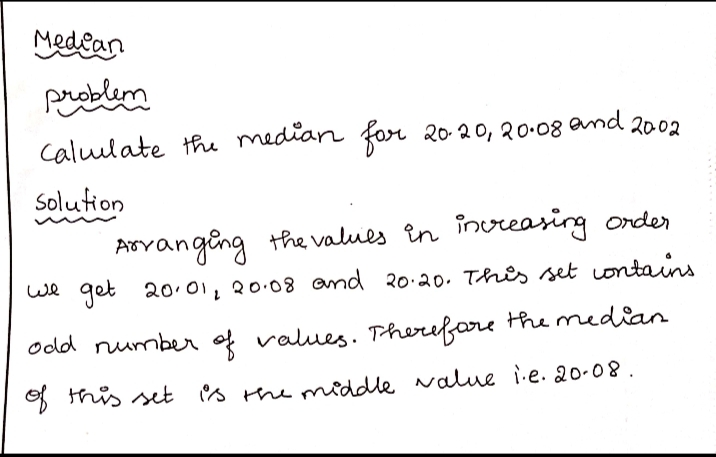 Median
problem
Calculate the median for 20.20, 20.08 and 20.02
Solution
Arranging the values in increasing order
we get 20.01, 20.08 and 20.20. This set contains
odd number of values. Therefore the median
of this set is the middle value i.e. 20.08.